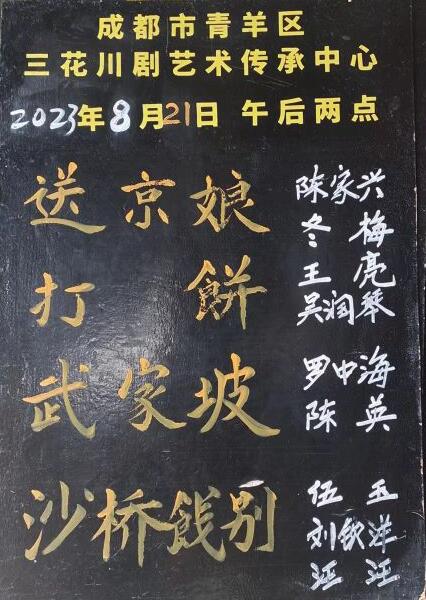 成都市青羊区
三花川剧艺术传承中心
2023年8月21日 午后两点
送京娘 陈家兴
冬梅
打餅 王亮
吴润琴
武家坡 罗中海
陈英
沙桥餞别 伍玉
刘钦洋
江汪